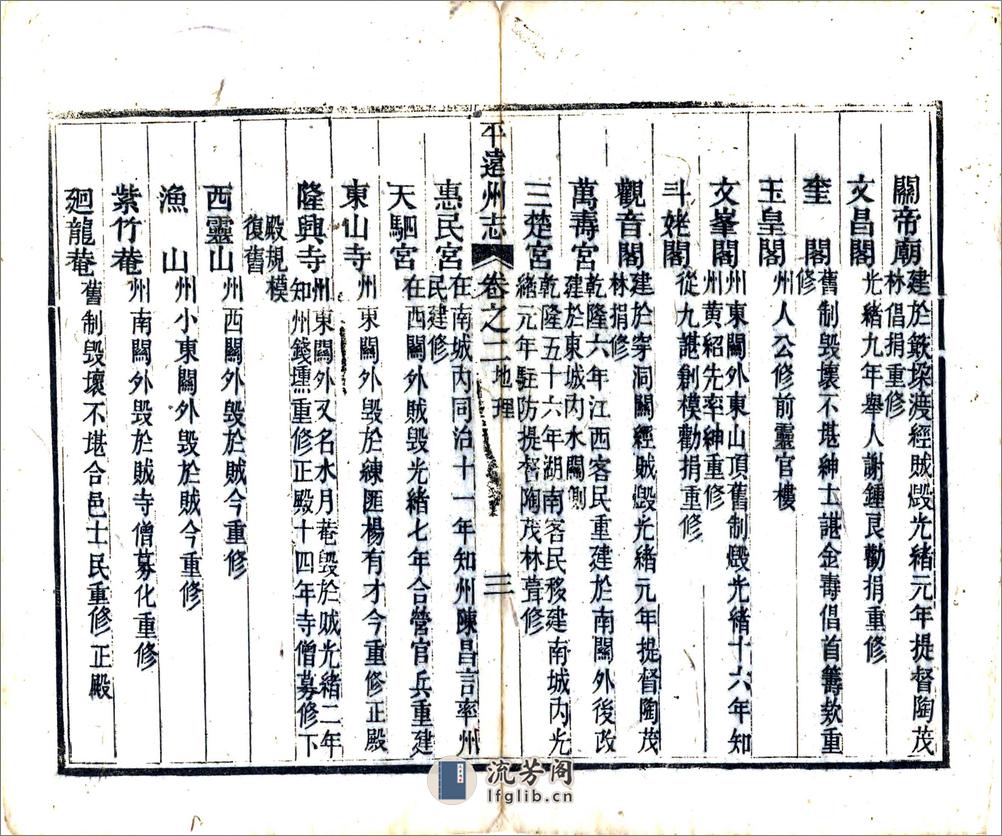 關帝廟建於鐵垜渡經賊燬光緒元年提督陶茂
林倡捐重修
文昌閣光緒九年舉人謝鍾良勸捐重修
奎閣舊制毀壞不堪紳士諶金壽倡首籌欵重
修
玉皇閣州人公修前靈官樓
文峯閣州東關外東山頂舊制燬光緒十六年知
州黃紹先率紳重修
斗姥閣從九諶創模勸捐重修
觀音閣建於穿洞關經賊燬光緒元年提督陶茂
林捐修
萬壽宮乾隆六年江西客民重建於南關外後改
建於東城內水關側
三楚宮乾隆五十六年湖南客民移建南城內光
緒元年駐防提督陶茂林葺修
平遠州志 卷之二 地理 三
惠民宮在南城內同治十一年知州陳昌言率州
民建修
天駟宮在西關外賊毀光緒七年合營官兵重建
東山寺州東關外毀於練匯楊有才今重修正殿
隆興寺州東關外又名水月菴毀於賊光緒二年
知州錢壎重修正殿十四年寺僧募修下
殿規模
復舊
西靈山州西關外毀於賊今重修
漁山州小東關外毀於賊今重修
紫竹菴州南關外毀於賊寺僧募化重修
迴龍菴舊制毀壞不堪合邑士民重修正殿
流芳阁
lfglib.cn